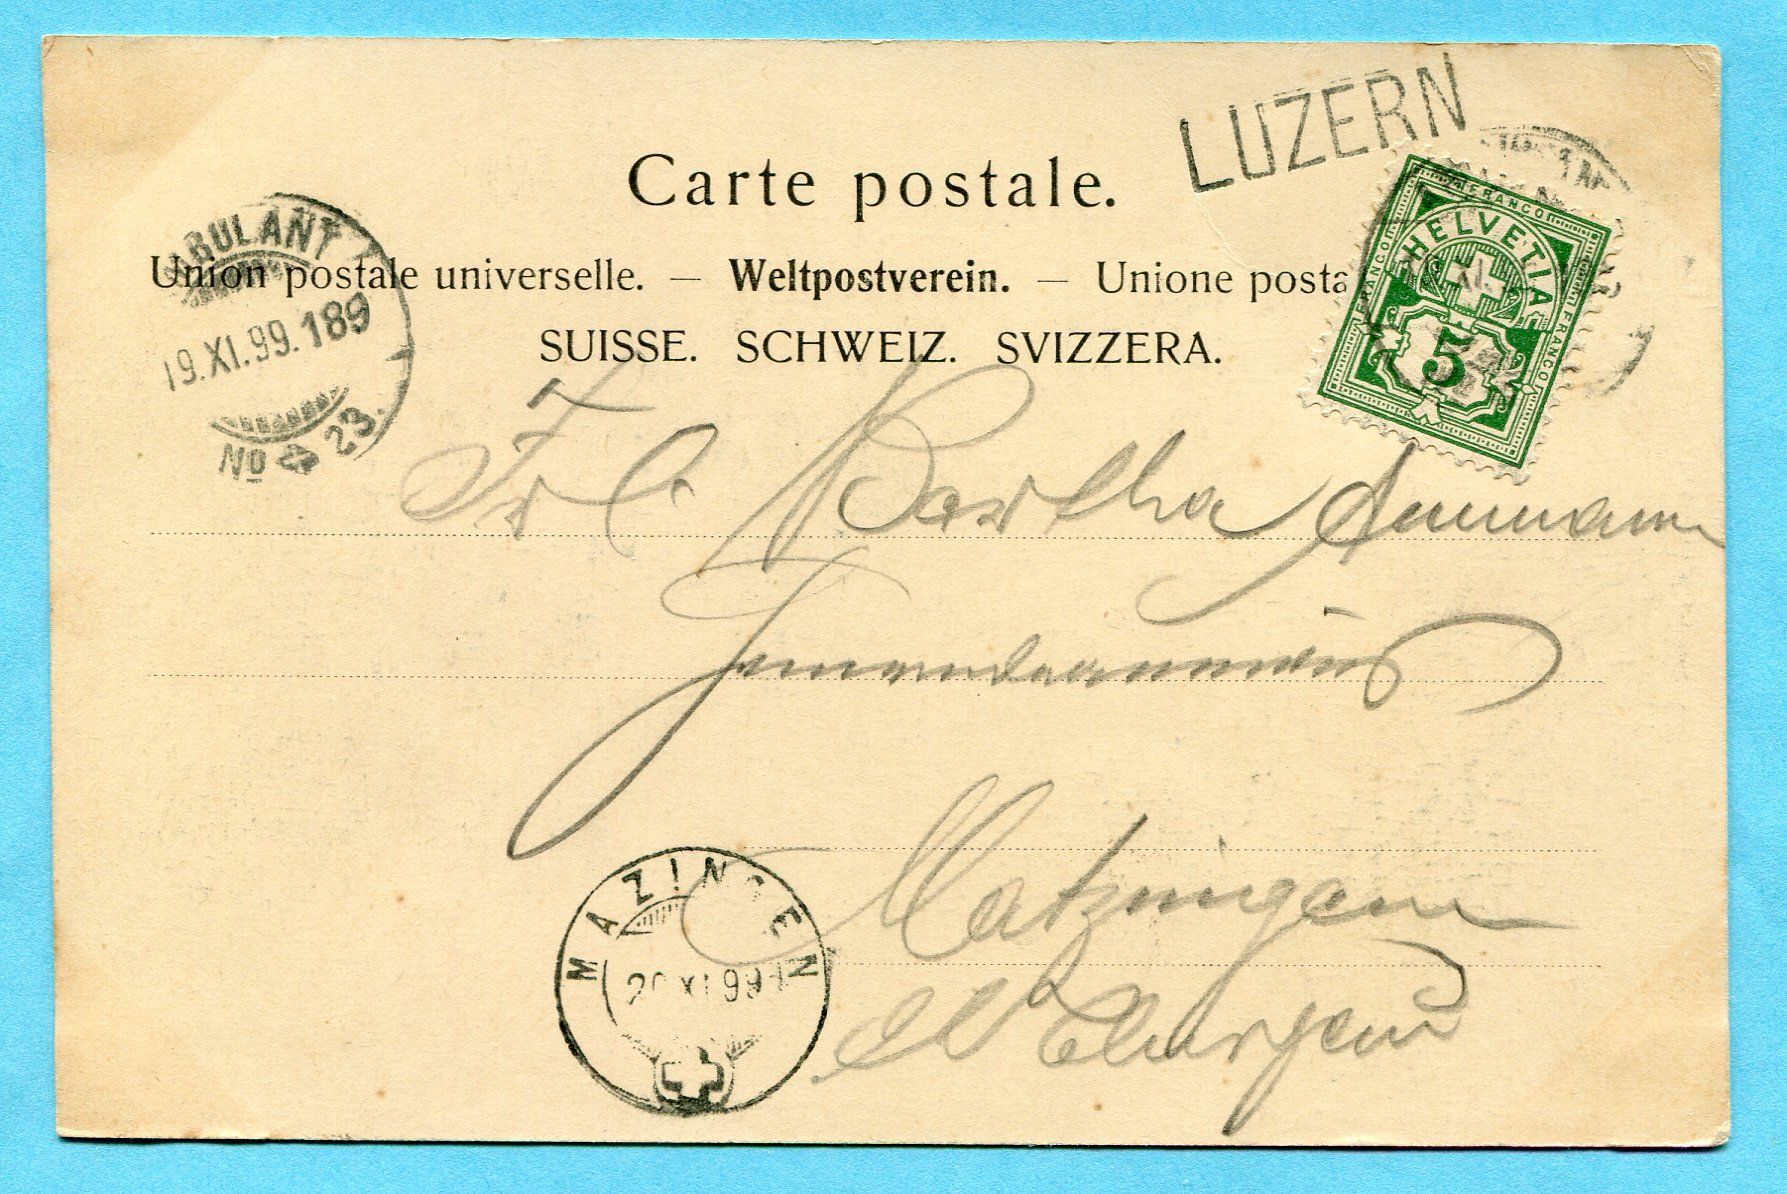 LUZERN
Carte postale.
AMBULANT
Union postale universelle. — Weltpostverein. — Unione posta
19.XI.99.189
No 23.
SUISSE. SCHWEIZ. SVIZZERA.
FRANCO FRANCO FRANCO
HELVETIA
XI.
5
Frl. Bertha Ammann
Matzingen
Kt Thurgau
MAZINGEN
20 XI 99